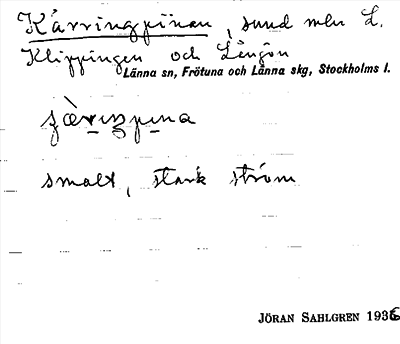 Kärringpinan, sund mln L.
Klippingen och Långön
Länna sn, Frötuna och Länna skg, Stockholms l.
smalt, stark ström
JÖRAN SAHLGREN 1936